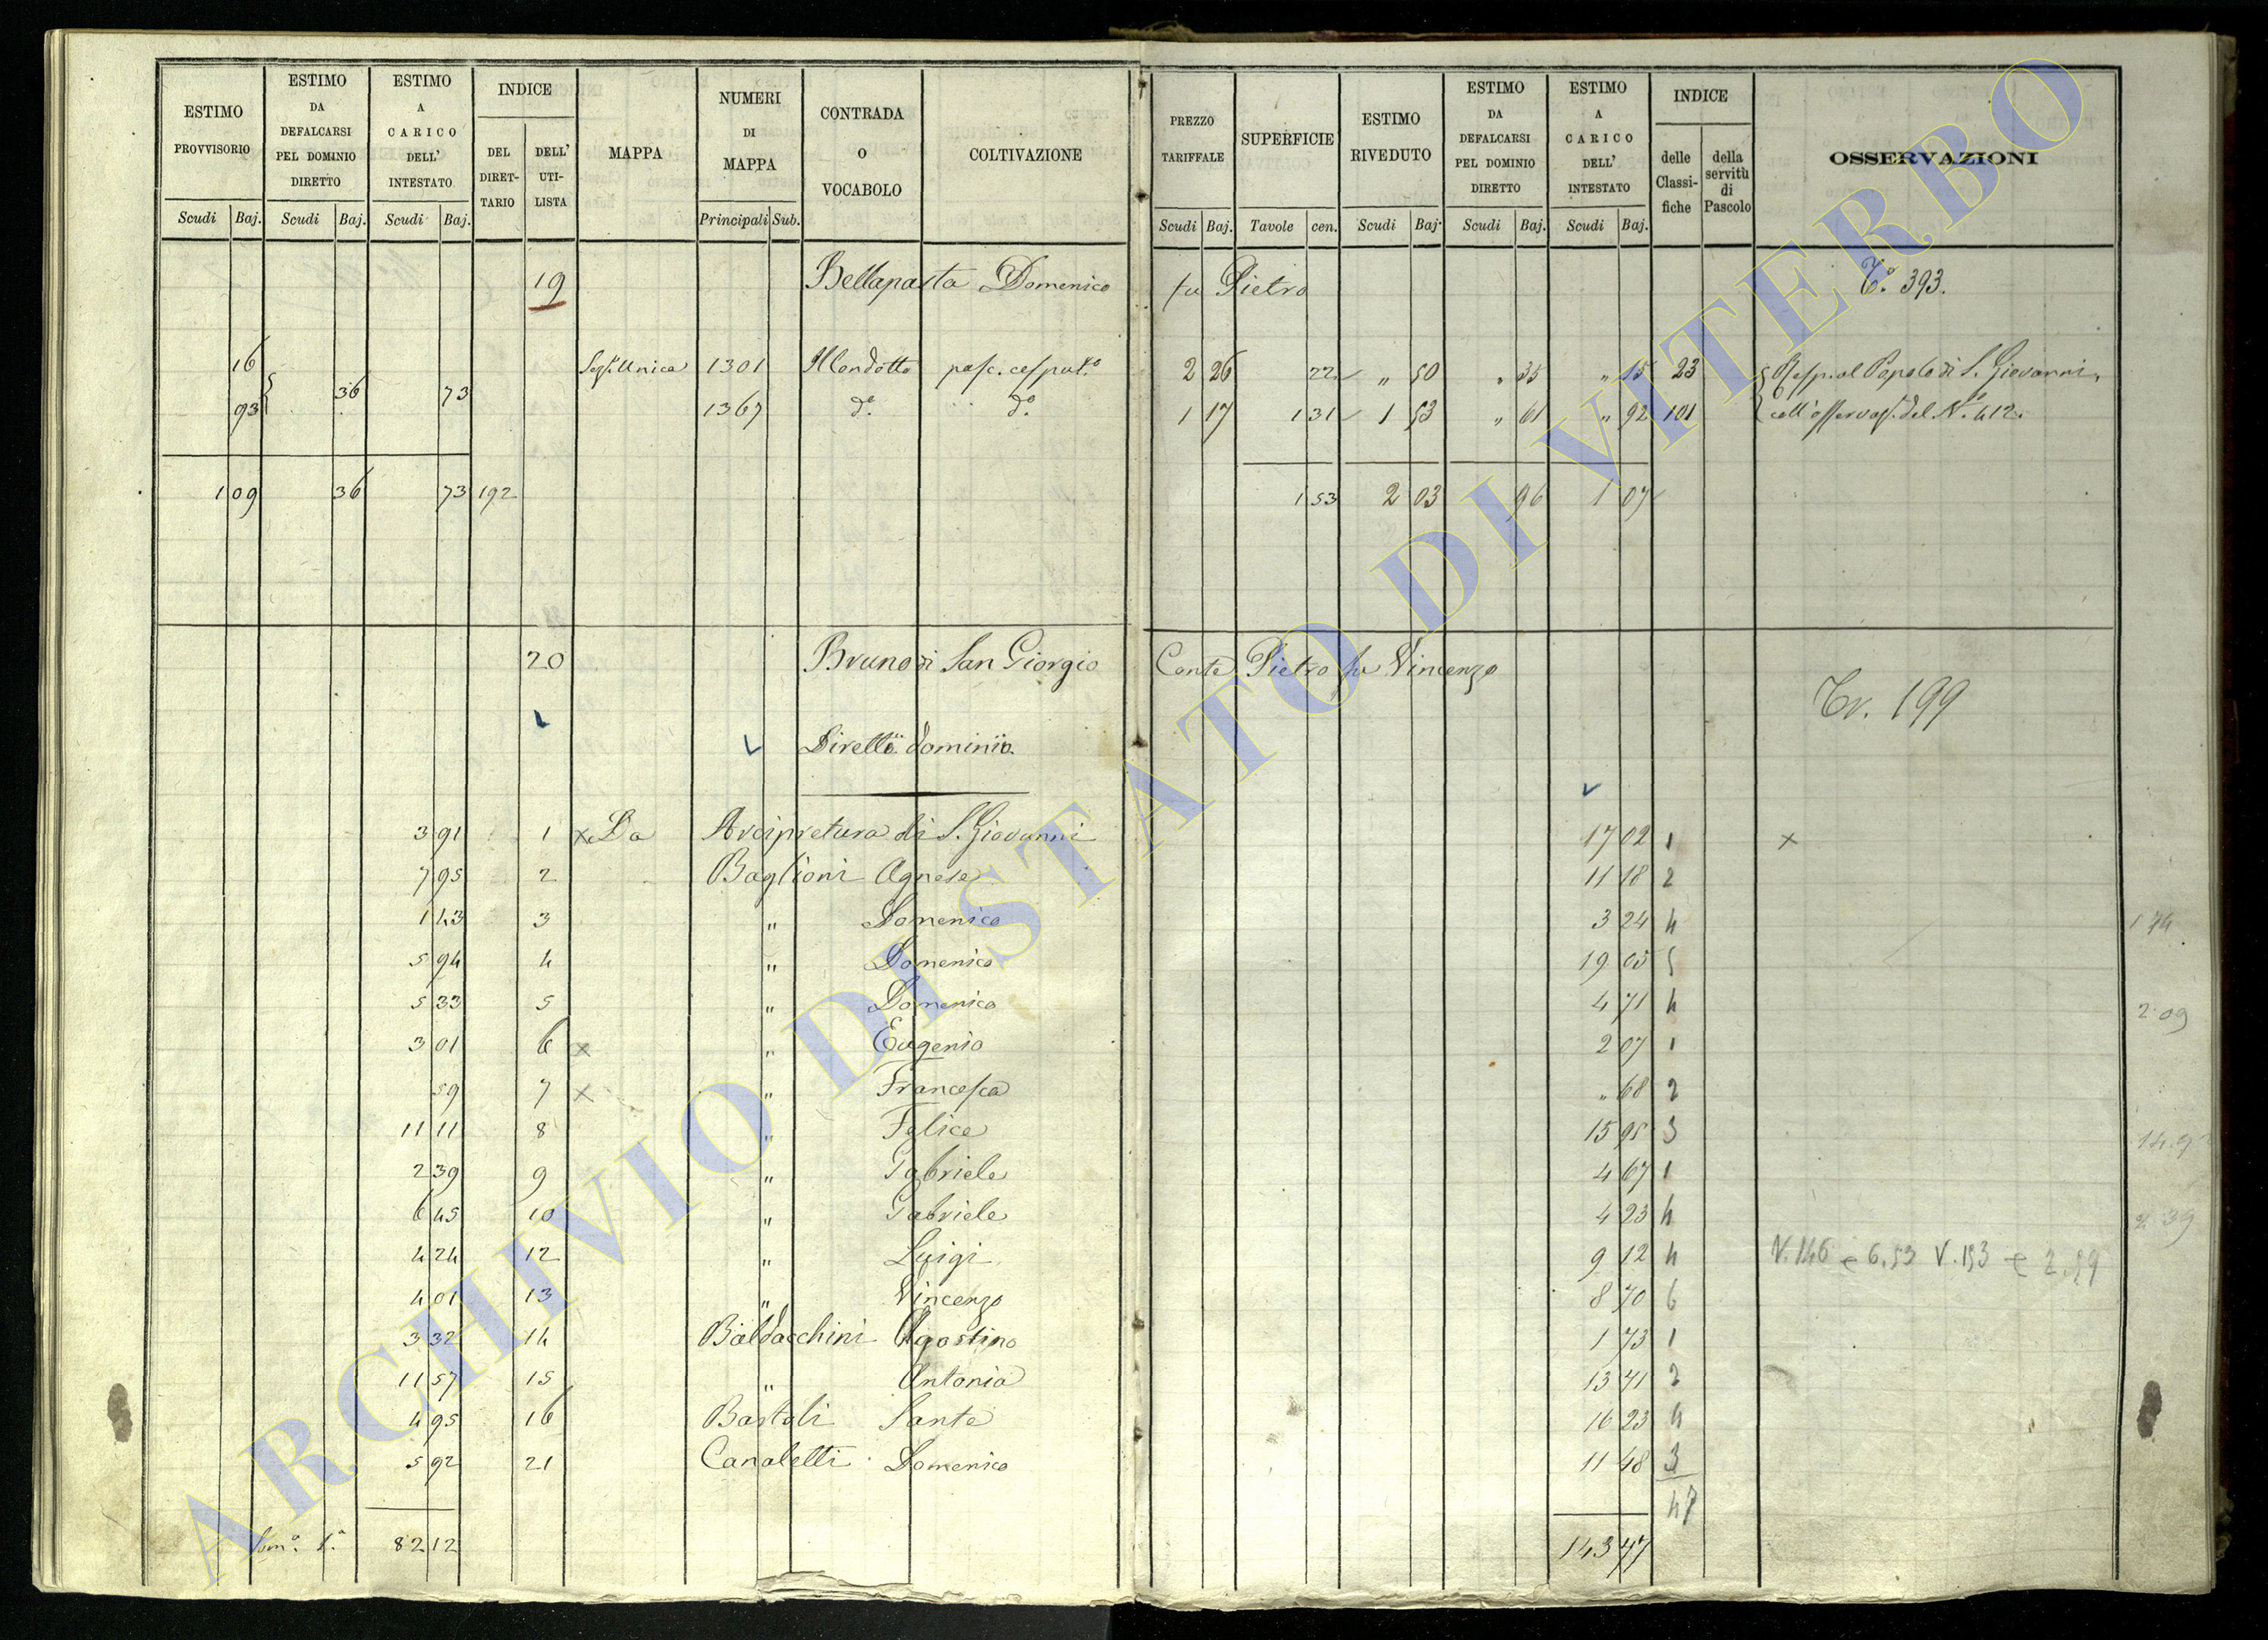 ESTIMO PROVVISORIO | ESTIMO DA DEFALCARSI PEL DOMINIO DIRETTO | ESTIMO A CARICO DELL' INTESTATO | INDICE | MAPPA | NUMERI DI MAPPA | CONTRADA O VOCABOLO | COLTIVAZIONE | PREZZO TARIFFALE | SUPERFICIE | ESTIMO RIVEDUTO | ESTIMO DA DEFALCARSI PEL DOMINIO DIRETTO | ESTIMO A CARICO DELL' INTESTATO | INDICE | OSSERVAZIONI
DEL DIRETTARIO | DELL' UTILISTA | delle Classifiche | della servitù di Pascolo
Scudi Baj. | Scudi Baj. | Scudi Baj. | Principali Sub. | Scudi Baj. | Tavole cen. | Scudi Baj. | Scudi Baj. | Scudi Baj.
19 Bellapasta Domenico fu Pietro 393.
16 Unica 1301 Il Condotto 2 26 22 " 50 " 35 " 15 23 al Popolo di S. Giovanni
36 73
93 1367 d.o d.o 1 17 1 31 1 53 " 61 " 92 101 coll' del N.o 412.
1 09 36 73 192 1 53 2 03 96 1 07
20 Bruno di San Giorgio Conte Pietro fu Vincenzo
199
Diretti dominii
3 91 1 x Da Arcipretura di S. Giovanni 17 02 1 x
7 95 2 Baglioni Agnese 11 18 2
1 43 3 " Domenico 3 24 4 1 74
5 94 4 " Domenico 19 05 5
5 33 5 " Domenico 4 71 4 2 09
3 01 6 x " Eugenio 2 07 1
59 7 x " Francesca " 68 2
11 11 8 " Felice 15 95 3
2 39 9 " Gabriele 4 67 1
6 45 10 " Gabriele 4 23 4 2 39
4 24 12 " Luigi 9 12 4 V. 146 e 6.53 V. 193 e
4 01 13 " Vincenzo 8 70 6
3 32 14 Baldacchini Agostino 1 73 1
11 57 15 " Antonia 13 71 2
4 95 16 Bartoli Sante 16 23 4
5 92 21 Canaletti Domenico 11 48 3
47
Som.a 1.a 82 12 143 77
ARCHIVIO DI STATO DI VITERBO